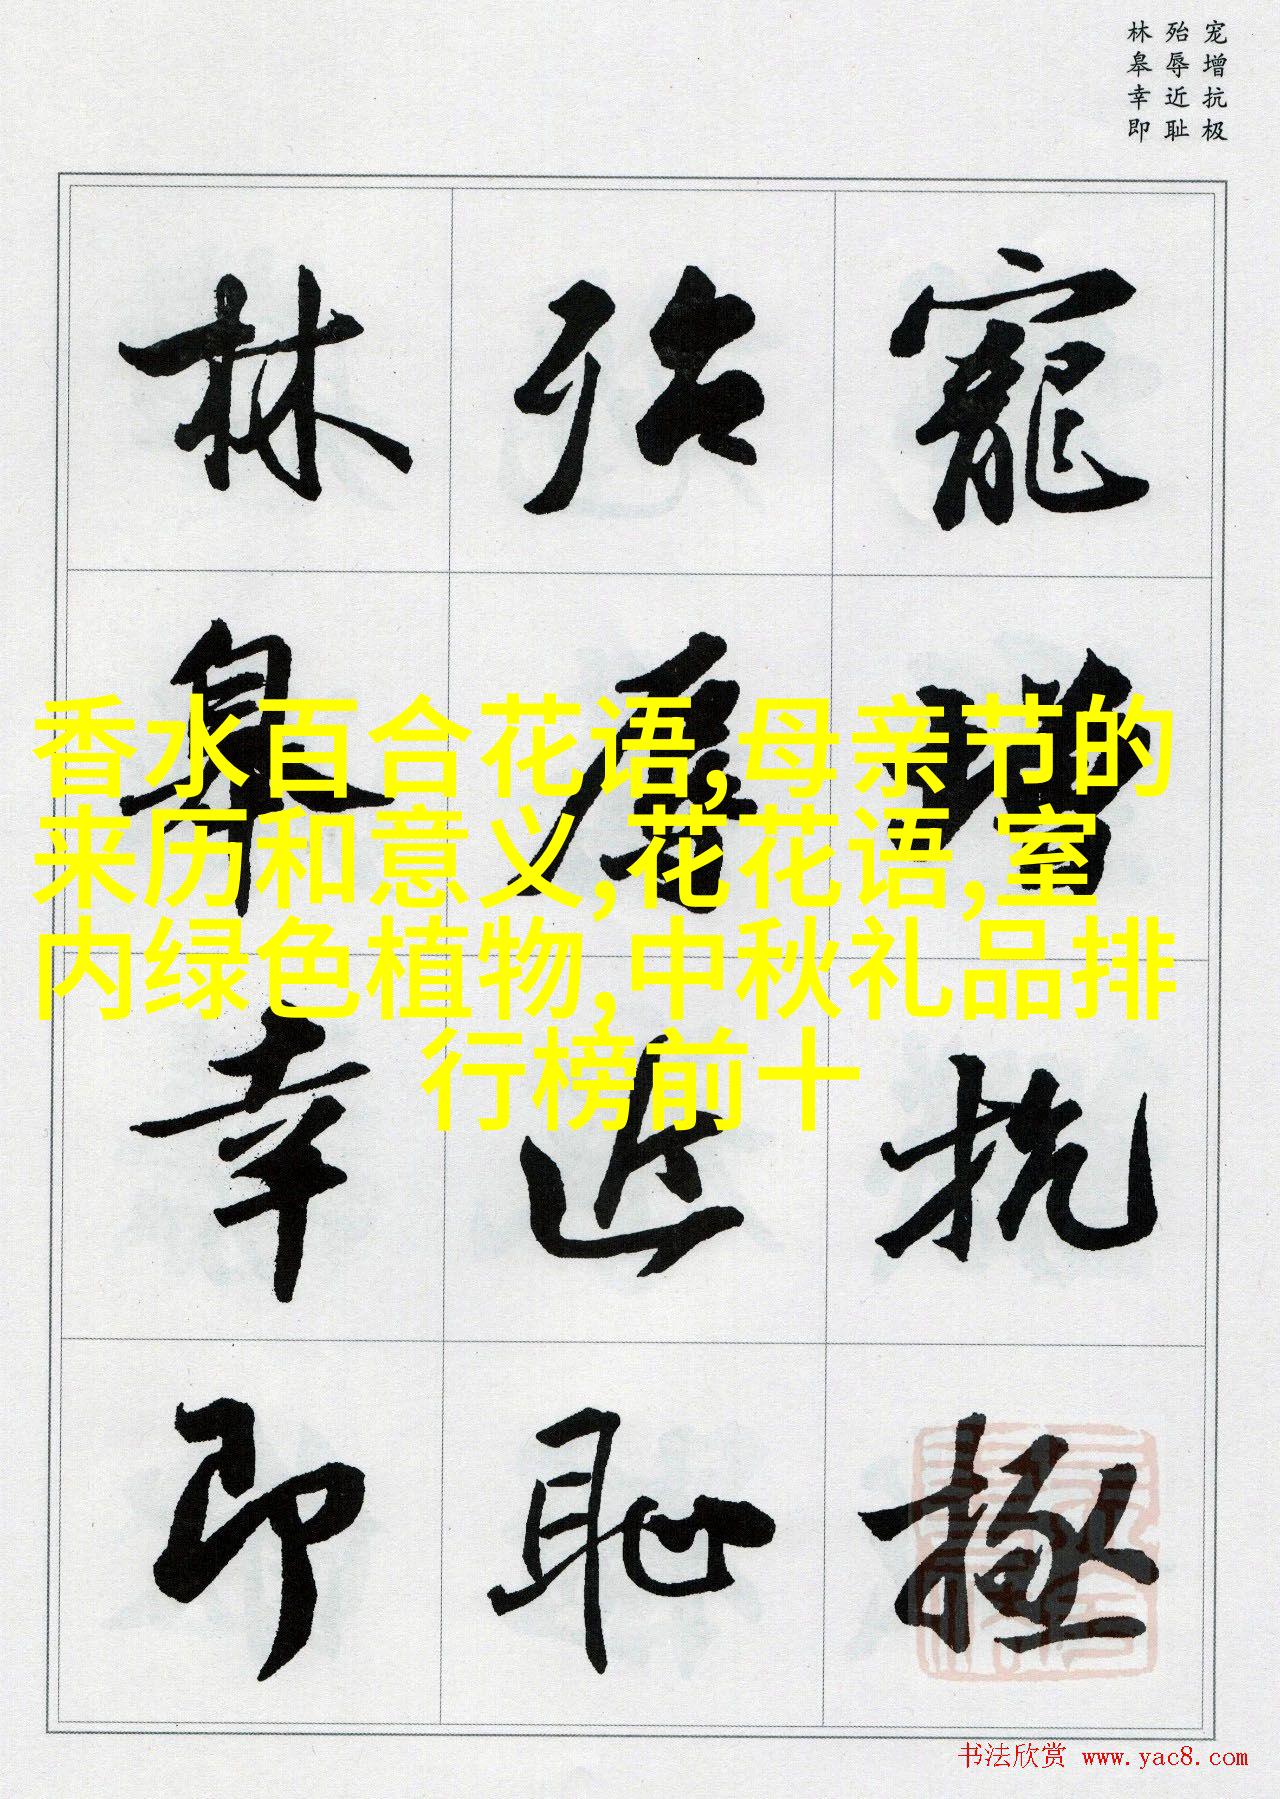 宠增抗极
殆辱近耻
林皋幸即
寵增抗極
殆辱近恥
林皋幸即
香水百合花语,母亲节的
来历和意义,花花语,室
内绿色植物,中秋礼品排
行榜前十
书法欣赏 www.yac8.com